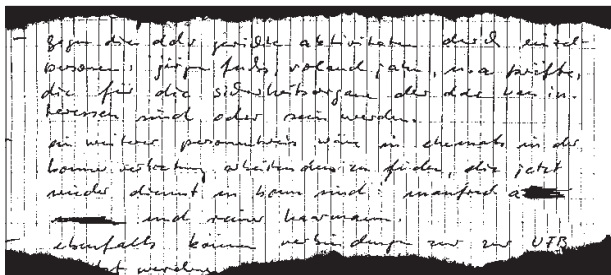 gegen die ddr gerichte aktivitäten durch einzel-
personen, jürgen fuchs, roland jahn, u.a prüfte,
die für die sicherheitsorgane der ddr von in-
teressen sind oder sein werden.
ein weiterer personenkreis wäre in ehemals in der
bonner vertretung arbeitenden zu finden, die jetzt
wieder dienst in bonn sind. manfred a
und reiner haarmann.
ebenfalls können verbindungen zur UTB
t werden